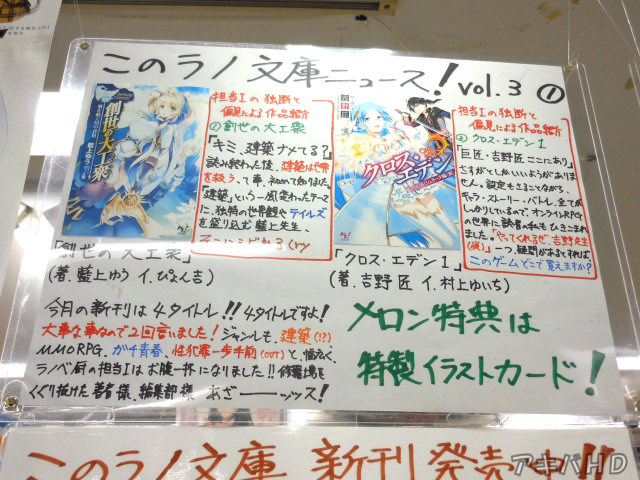 このラノ文庫ニュース! vol.3 ①
担当Iの独断と
偏見による作品紹介
①創世の大工衆
「キミ、建築ナメてる?」
読み終わった後、建築は世界
を救うって事、初めて知りました。
「建築」という一風変わったテーマ
に、独特の世界観とテイルズ
を盛り込む藍上先生、
そこにシビれる(ry
創世の大工衆
藍上ゆう
クロス・エデン
担当Iの独断と
偏見による作品紹介
②クロス・エデン1
「巨匠・吉野匠ここにあり」
さすがとしかいいようがありま
せん。設定もさることながら、
キャラ・ストーリー・バトル、全てが
しっかりしているので、オンラインRPG
の世界に読者の私もひきこまれ
ました。「やってくれるぜ、吉野先生
(仮)」一つ疑問があるとすれば、
このゲーム、どこで買えますか?
「創世の大工衆」
(著.藍上ゆう イ.ぴょん吉)
「クロス・エデン1」
(著.吉野匠 イ.村上ゆいち)
今月の新刊は4タイトル!!4タイトルですよ!
大事な事なので2回言いました!ジャンルも、建築(!?)
MMORPG、ガチ青春、性犯罪一歩手前(OUT)と、幅広く、
ラノベ厨の担当Iはお腹一杯になりました!!修羅場を
くぐり抜けた著者様、編集部様 あざーーッス!
メロン特典は
特製イラストカード!
このラノ文庫 新刊発売中!!
アキバHD